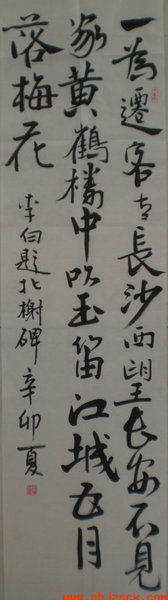 一為遷客去長沙西望長安不見
家黃鶴樓中吹玉笛江城五月
落梅花
李白題北榭碑辛卯夏